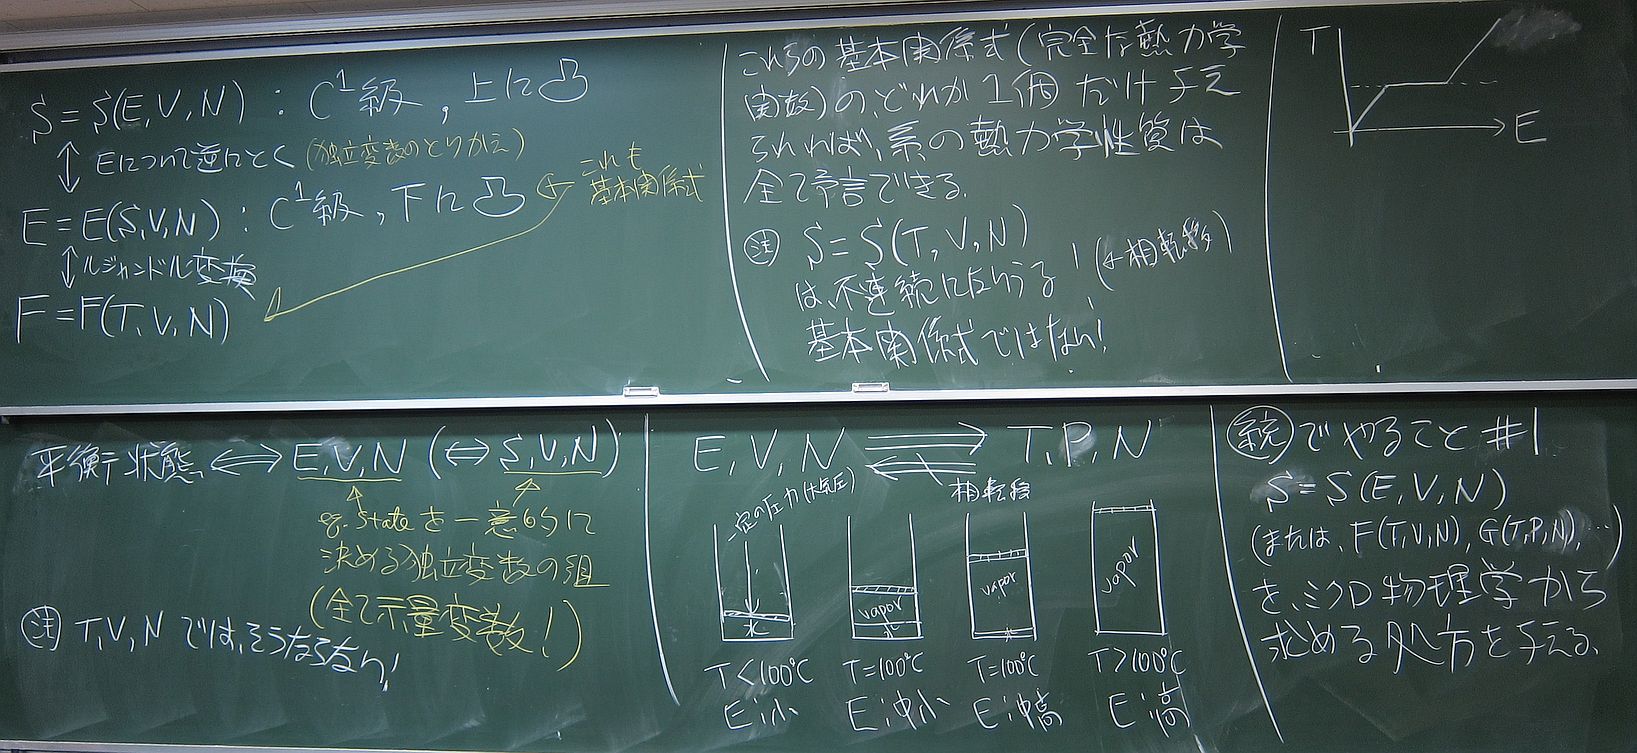 S=S(E,V,N) : C¹級, 上に凸
↕ Eについて逆にとく (独立変数のとりかえ)
E=E(S,V,N) : C¹級, 下に凸
これも
基本関係式
↕ ルジャンドル変換
F=F(T,V,N)
これらの基本関係式(完全な熱力学
関数)の、どれか1個だけ与え
られれば、系の熱力学性質は
全て予言できる.
注 S=S(T,V,N)
は、不連続になりうる! (←相転移)
基本関係式ではない!
T
E
平衡状態 ⟺ E,V,N (⟺ S,V,N)
eq. stateを一意的に
決める独立変数の組
(全て示量変数!)
注 T,V,N では、そうならない!
E,V,N ⇄ T,P,N
相転移
一定の圧力(大気圧)
水
vapor
水
vapor
水
vapor
T<100℃
E:小
T=100℃
E:中小
T=100℃
E:中高
T>100℃
E:高
統でやること #1
S=S(E,V,N)
(または、F(T,V,N), G(T,P,N), …)
を、ミクロ物理学から
求める処方を与える.